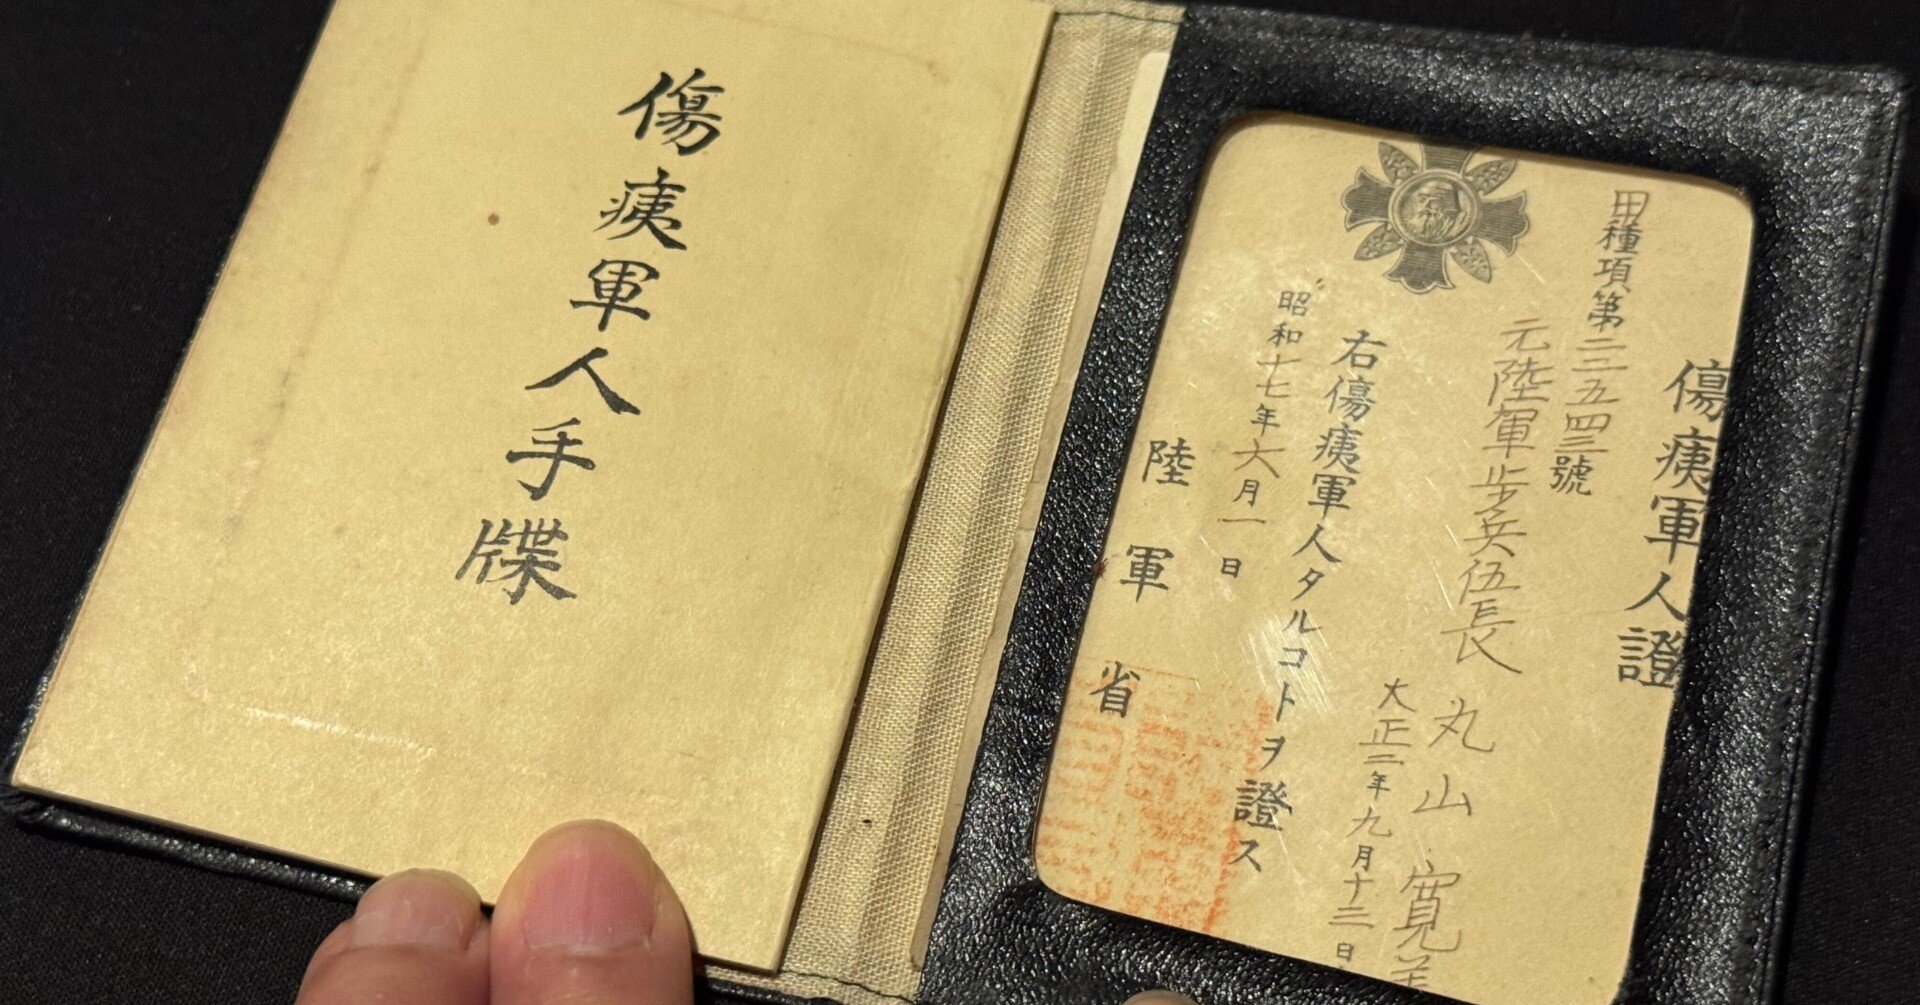 傷痍軍人手牒
傷痍軍人證
甲種項第二二五四三號
元陸軍歩兵伍長 丸山 寛
大正二年九月十三日
右傷痍軍人タルコトヲ證ス
昭和十七年六月一日
陸軍省